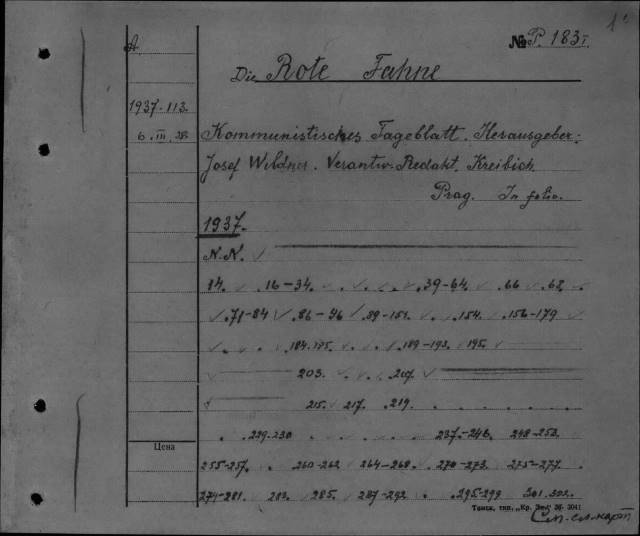 1
A.
№ P. 183 I.
Die Rote Fahne
1937. 113.
6. III. 38.
Kommunistisches Tageblatt. Herausgeber:
Josef Wildner. Verantw. Redakt. Kreibich.
Prag. In folio.
1937.
N.N.
14. 16-34. 39-64. 66
71-84 86-96 154. 156-179
189-193. 195.
203. 207.
215. 217. 219.
229-230 237-246. 248-253.
Цена
255-257. 260-262 264-268. 270-273. 275-277.
279-281. 283. 285. 287-292 295-299 301.
Томск, тип. „Кр. Зн." 36-3041
См. сл. карт